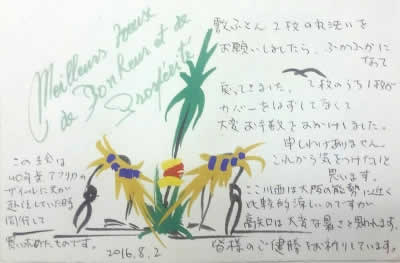 Meilleurs voeux
de Bonheur et de
Prospérité
敷ふとん 2枚の丸洗いを
お願いしましたら、ふかふかに
なって
戻ってきました。 2枚のうち1枚が
カバーをはずしてなくて
大変お手数をおかけしました。
申しわけありません。
これから気をつけたいと
思います。
ここ川西は大阪の能勢に近く
比較的涼しいのですが
高知は大変な暑さと思われます。
皆様のご健勝をお祈りしています。
この絵は
40年前アフリカの
ザイールに夫が
赴任していた時
同行して
買い求めたものです。
2016.8.2